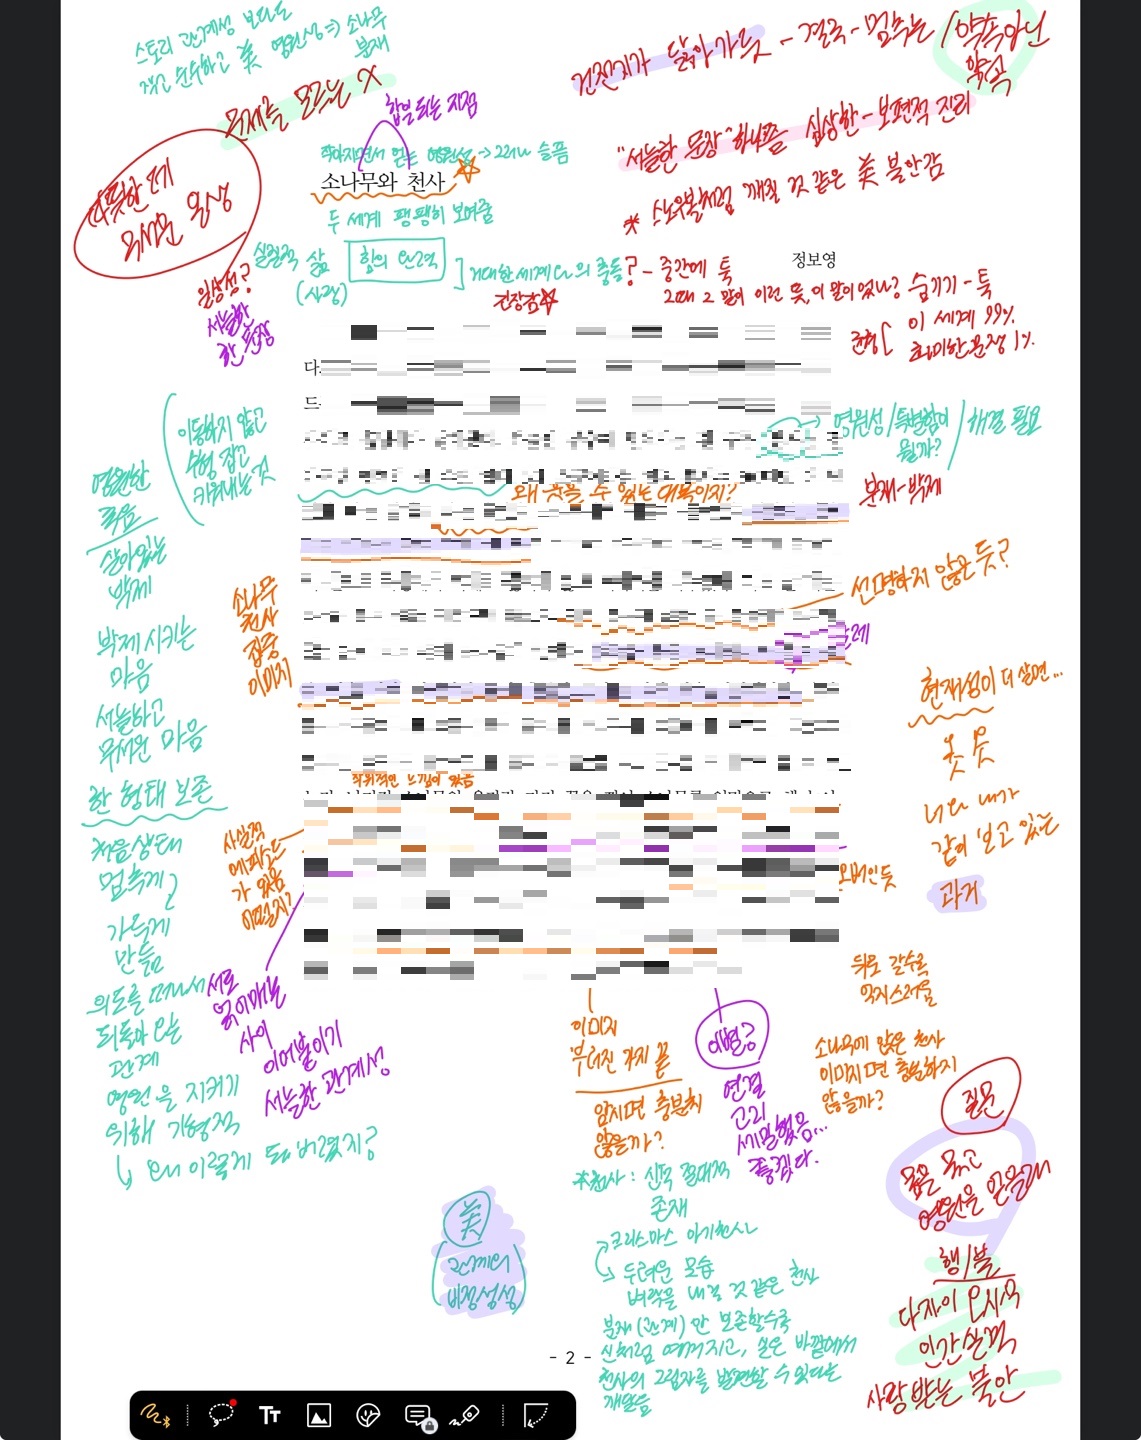 스토리 관계성 보다는
작고 순수하고 美 영원성 ⇒ 소나무
분재
주제를 모르는 X
합일 되는 지점
소나무와 천사
두 세계 팽팽히 보여줌
정보영
건전지가 닳아가듯 - 결국 - 멈추는 / 약속 아닌
약속
"서늘한 문장" 하나쯤 심상한 - 보편적 진리
* 스노우볼처럼 깨질 것 같은 美 불안감
따뜻한데
무서운 온상
일상성?
서늘한
한 문장
실질적 삶
(사랑)
힘의 인력
거대한 세계 다의 충돌? - 중간에 툭
긴장감
숨기기 - 툭
균형 [ 이 세계 99%
희미한 문장 1%
다
드
영원성 / 특별함이
될까?
해결 필요
분재 - 박제
이동하지 않고
수형 잡고
키워내는 것
영원한
죽음
살아있는
박제
박제 시키는
마음
서늘하고
무서운 마음
한 형태 보존
처음 상태
멈추게
가두게
만듦
의도를 떠나서
되돌아 오는
관계
영원을 지키기
위해 기형적
↳ 왜 이렇게 돼 버렸지?
왜 웃을 수 있는 대목이지?
소나무
천사
집중
이미지
선명하지 않은 듯?
현재성이 더 살면...
너와 내가
같이 보고 있는
과거
작위적인 느낌이 있음
사실적
에피소드
가 있음
어떨지?
오버인 듯
서로
얽어매는
사이
이어붙이기
서늘한 관계성
이미지
부러진 가지 끝
암시면 충분치
않을까?
이별?
연결
고리
세밀했음...
좋겠다.
뒤로 갈수록
억지스러움
소나무에 앉은 천사
이미지면 충분하지
않을까?
질문
몸을 묶고
영원을 얻을래
행/불
다자이 오사무
인간실격
사랑 받는 불안
美
관계의
비정성성
*천사 : 신적 절대적
존재
크리스마스 아기천사
두려운 모습
벼락을 내릴 것 같은 천사
분재 (관계) 안 보존할수록
신처럼 여겨지고, 실은 바깥에서
천사의 그림자를 발견할 수 있다는
깨달음
- 2 -